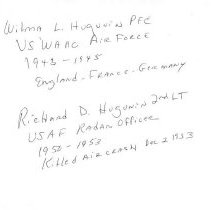 Wilma L. Hugunin PFC
US WAAC Air Force
1943 - 1945
England - France - Germany
Richard D. Hugunin 2nd LT
USAF Radar Officer
1950 - 1953
Killed Air crash Dec 2 1953